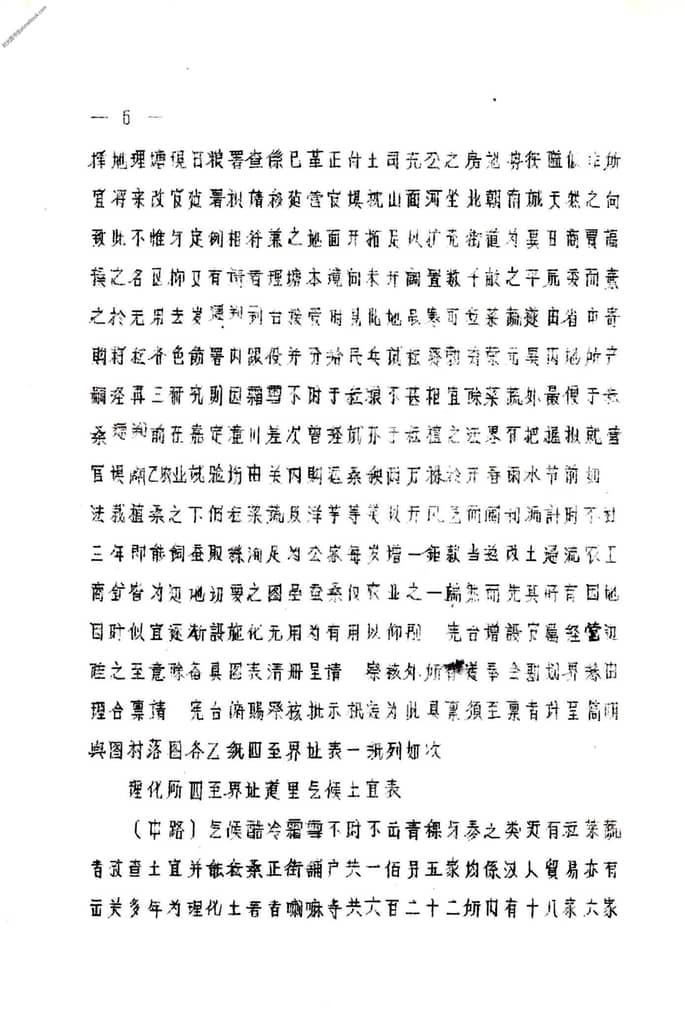 — 6 —
择地理塘现日粮署查系已革正付土司充公之房逈将狭隘似非所
宜将来改官建署拟请移建营官坝枕山面河坐北朝南诚天然之向
致此不惟与定例相符兼之地面开拓足以扩充街道为异日商贾福
换之名区抑又有请者理塘本境向未开阔置数千亩之平原委而弃
之於无用去岁 到台接管时见此地虽寒可种菜蔬遂由省中寄
购籽种各色饬署内跟役并分给民兵试种 与内地所产
再三研究则因霜雪不时于种粮不甚相宜除菜蔬外最便于种
桑 前在嘉定潼川差次曾经 于种植之法畧有把握拟就营
官坝 农业试验场由关内购运桑秧两万株於开春雨水节前切
法栽植桑之下伯种菜蔬及洋芋等 以开风气而阔利源計时不过
三年即能饲蚕取丝洵足为公家每岁增一钜款当兹改土归流农工
商矿皆为边地切要之图虽蚕桑仅农业之一端然而先其所有因地
因时似宜逐渐設施化无用为有用以仰副 宪台增設官属经营边
陲之至意除备具图表清册呈请 察核外所有遵奉会勘划界缘由
理合禀請 宪台俯赐察核批示祗遵为此具禀须至禀者计呈简明
與图村落图各乙纸四至界址表一纸列如次
理化所四至界址道里气候土宜表
（中路）气候酷冷霜雪不时不出青稞牙麦之类更有种菜蔬
者考查土宜并能种桑正街铺户共一佰另五家均係汉人貿易亦有
出关多年为理化土著者喇嘛寺共六百二十二所内有十八家六家